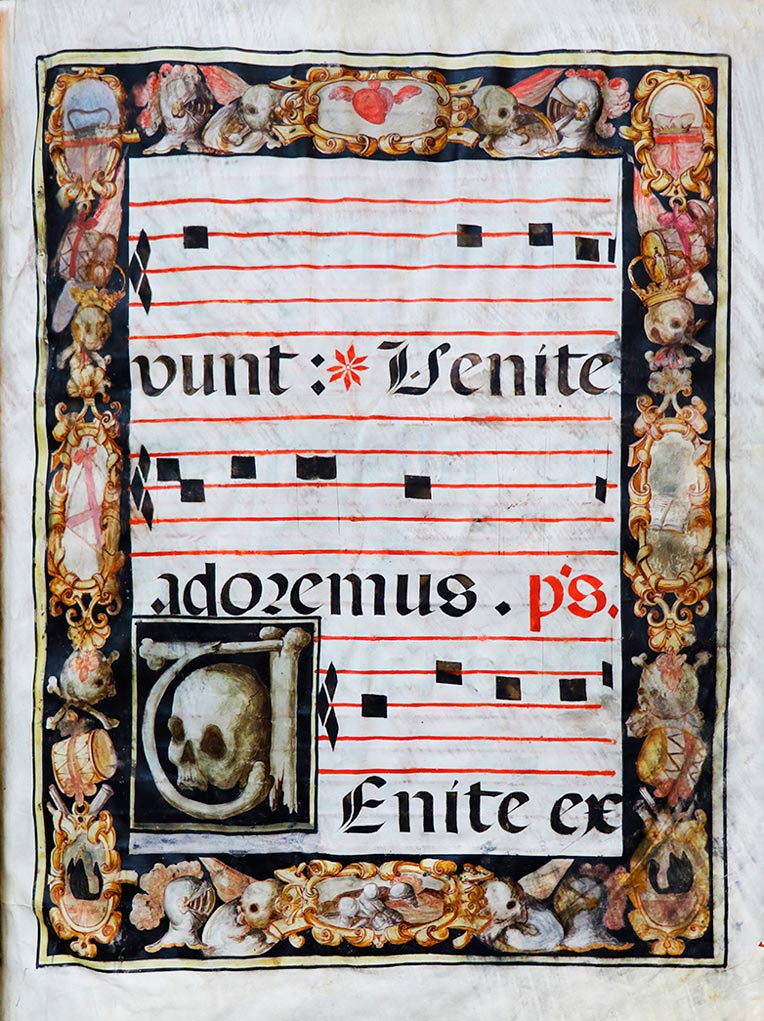 vunt : * Venite
adoremus . p's.
VEnite ex